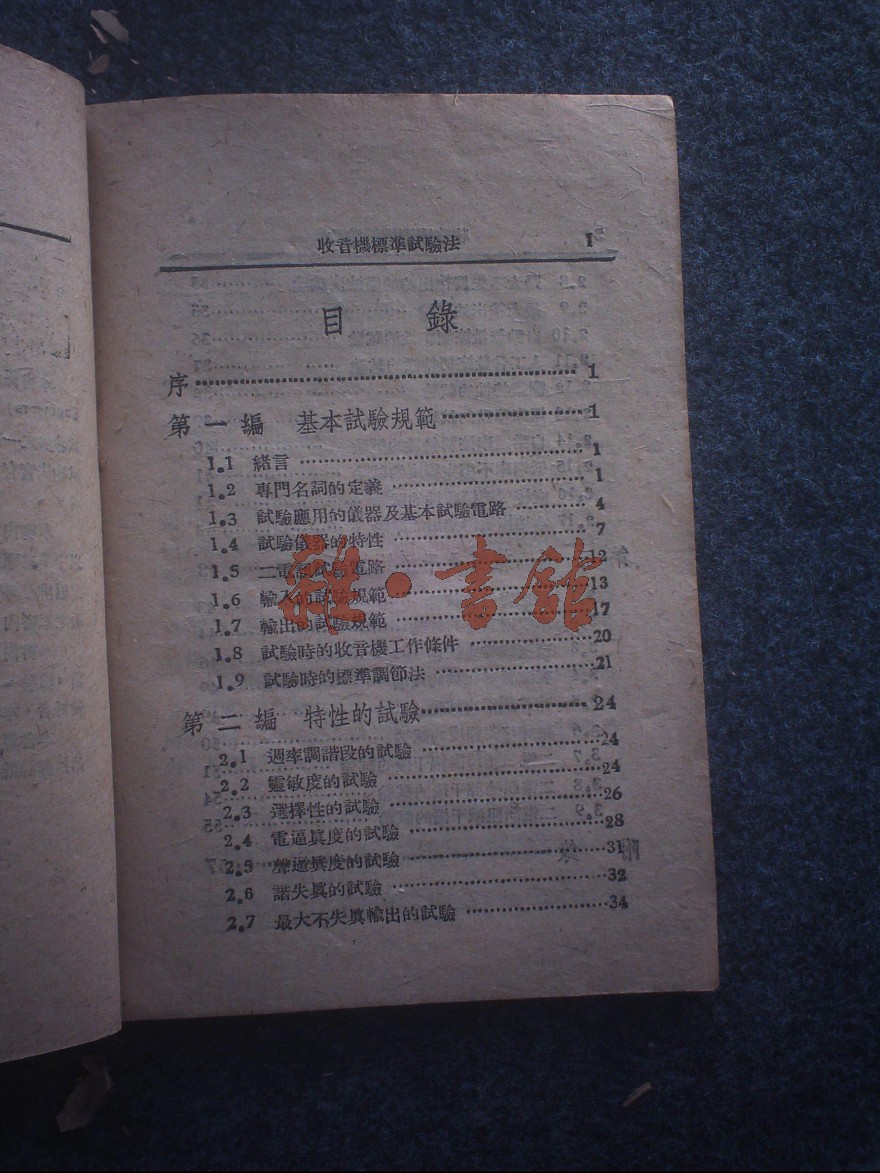 收音機標準試驗法 1
目 錄
序 1
第一編 基本試驗規範 1
1.1 緒言 1
1.2 專門名詞的定義 1
1.3 試驗應用的儀器及基本試驗電路 4
1.4 試驗儀器的特性 7
1.5 二電訊試驗電路 12
1.6 輸入的試驗規範 13
1.7 輸出的試驗規範 17
1.8 試驗時的收音機工作條件 20
1.9 試驗時的標準調節法 21
第二編 特性的試驗 24
2.1 週率調諧段的試驗 24
2.2 靈敏度的試驗 24
2.3 選擇性的試驗 26
2.4 電逼眞度的試驗 28
2.5 聲逼眞度的試驗 31
2.6 諧失眞的試驗 32
2.7 最大不失眞輸出的試驗 34
雜·書館